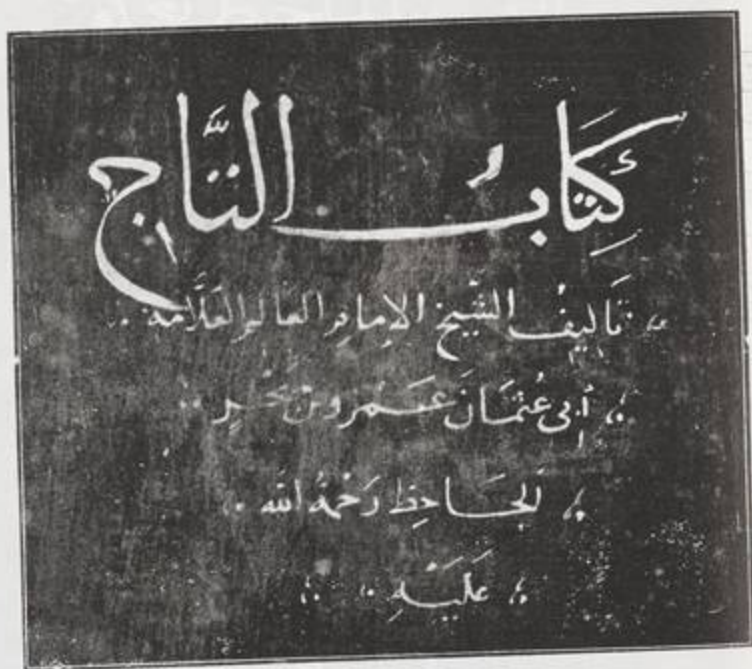 كِتَابُ التَّاج
تَأليفُ الشَّيخ الإمام العَالم العَلَّامَة
أبي عُثمَانَ عَمْرو بن بَحْرٍ
الجَاحِظ رَحْمَةُ الله
عَلَيْهِ